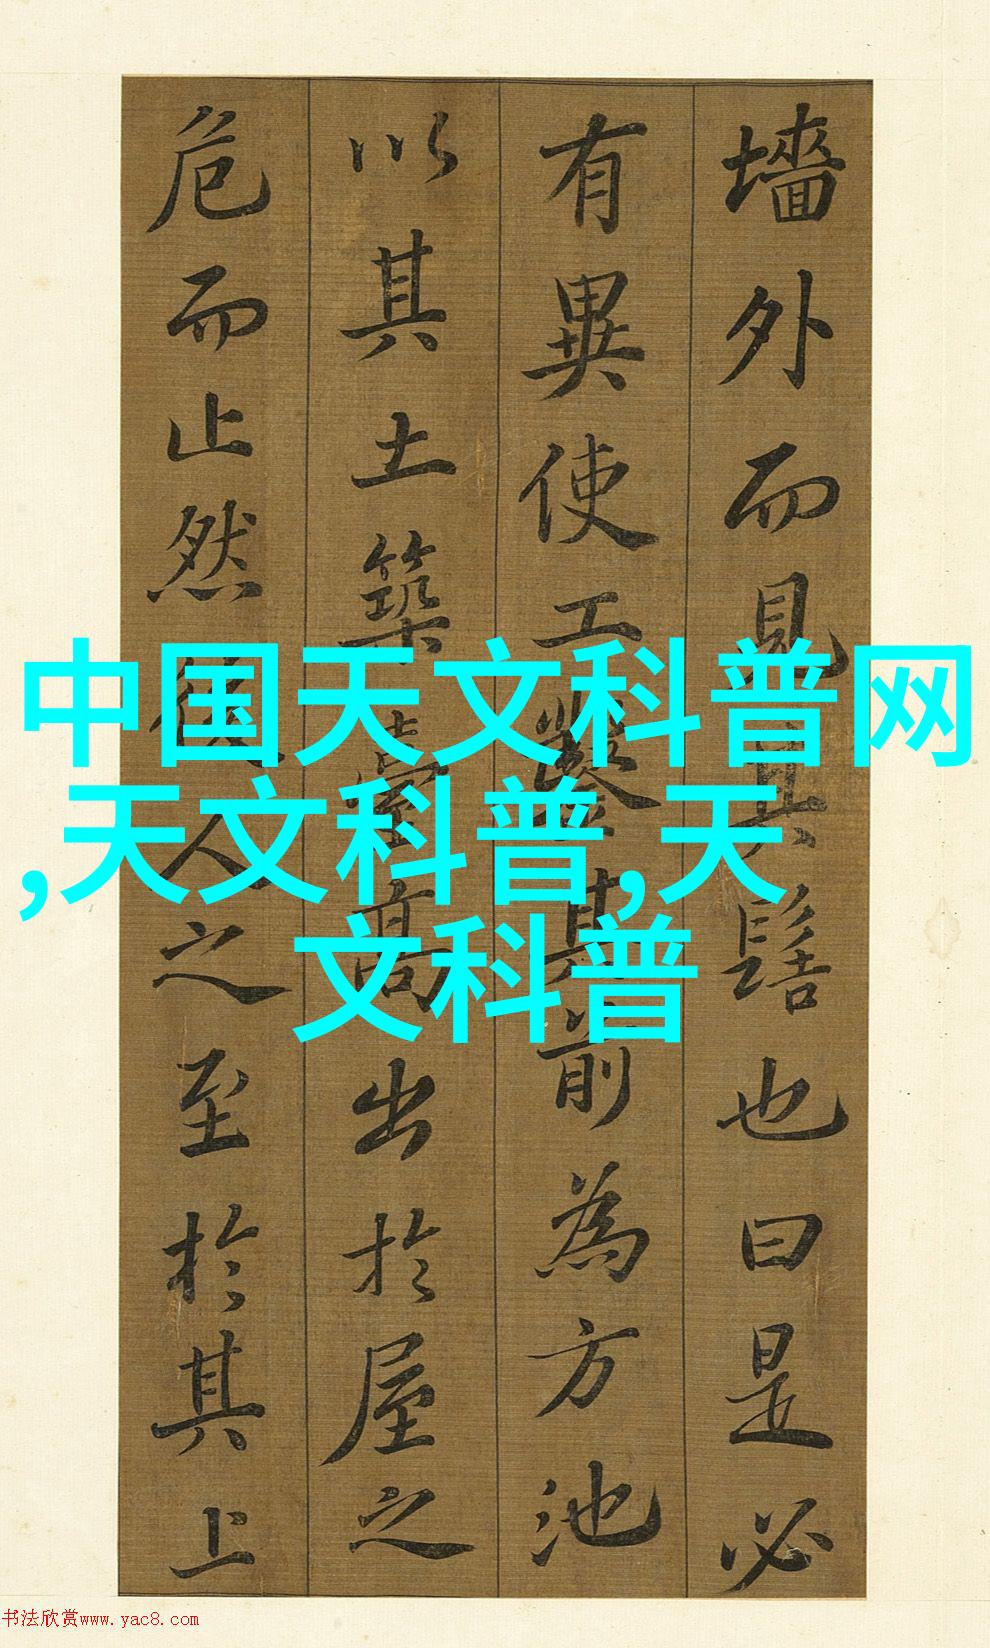 墻外而見其髻也曰是必
有異使工鑿其前為方池
以其土築臺高出於屋之
危而止然後人之至於其上
中国天文科普网
,天文科普,天
文科普
书法欣赏www.yac8.com